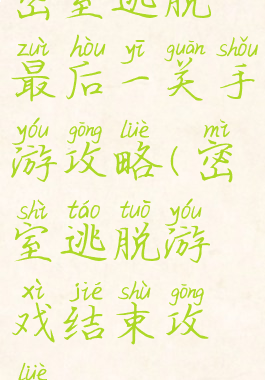 密室逃脱
zuì hòu yī guān shǒu
最后一关手
yóu gōng lüè mì
游攻略(密
shì táo tuō yóu
室逃脱游
xì jié shù gōng
戏结束攻
lüè